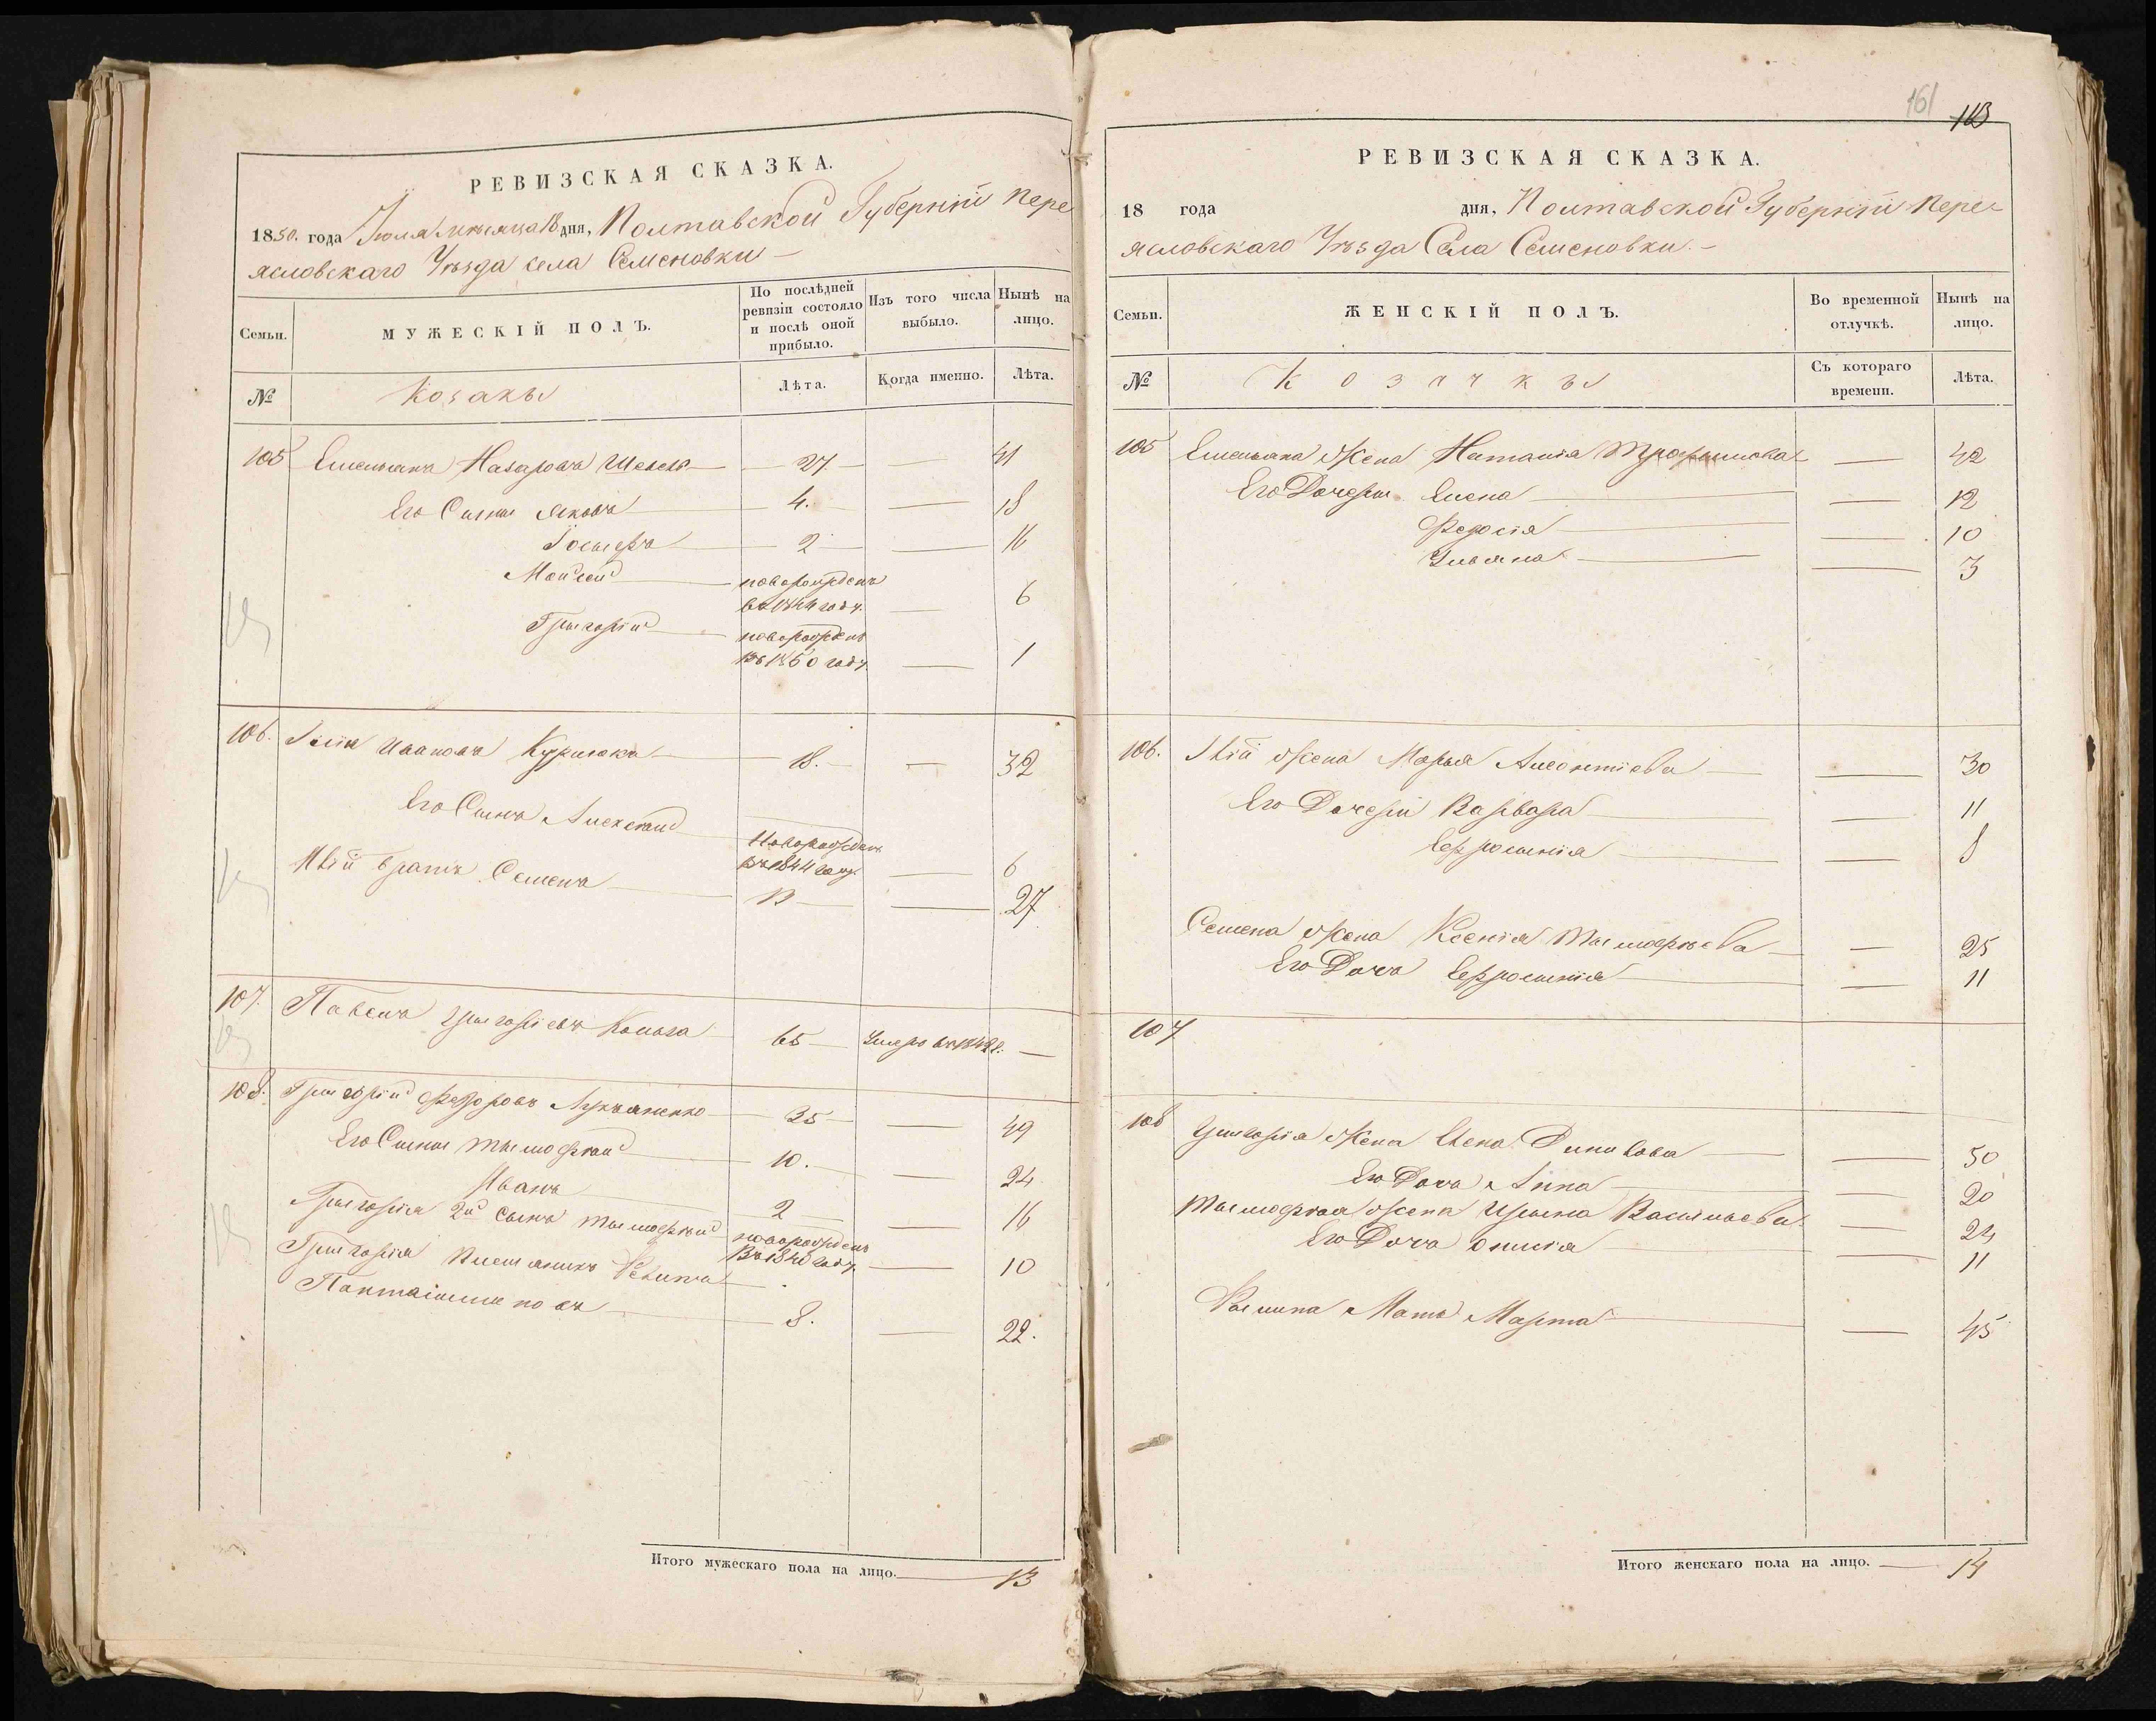 РЕВИЗСКАЯ СКАЗКА.
1850. года Іюля мѣсяца 18 дня, Полтавской Губерніи Пере
ясловскаго Уѣзда села Семеновки
Семьи.
МУЖЕСКІЙ ПОЛЪ.
По послѣдней ревизіи состояло и послѣ оной прибыло.
Изъ того числа выбыло.
Нынѣ на лицо.
№
Козаки
Лѣта.
Когда именно.
Лѣта.
105 Емельянъ Назаровъ — 27 — — 41
Его Сыны Яковъ — 4. — 18
Іосифъ — 2 — — 16
Моисей — новорожденъ
въ 1844 году. — 6
Григорій — новорожденъ
въ 1850 году. — 1
106. Ивановъ — 18. — — 32
Его Сынъ Алексѣй
Новорожденъ
въ 1844 году. — 6
братъ Семенъ — 13 — — 27
107. Павелъ Григоріевъ — 65 — Умеръ въ 184 г. —
108. Григорій Федоровъ Лукьяненко — 35 — — 49
Его Сыны Тымофѣй — 10. — 24
Иванъ — 2 — 16
Григорія 2й Сынъ Тымофѣй — новорожденъ
въ 1840 году. — 10
Григорія Племянникъ
Пантаімоновъ — 8. — 22.
Итого мужескаго пола на лицо. — 13
161
113
РЕВИЗСКАЯ СКАЗКА.
18 года дня, Полтавской Губерніи Пере-
ясловскаго Уѣзда Села Семеновки. —
Семьи.
ЖЕНСКІЙ ПОЛЪ.
Во временной отлучкѣ.
Нынѣ на лицо.
№
Козачки
Съ котораго времени.
Лѣта.
105 Емельяна жена Наталія — 42
Его Дочери Елена — — 12
Федосія — — 10
Ульяна — — 3
106. жена Марья Леонтіева — — 30
Его Дочери Варвара — — 11
Ефросинія — — 8
Семена жена Ксенія Тымофѣева — — 25
Его Дочь Ефросинія — — 11
107
108 Григорія жена Елена — — 50
Его Дочь Анна — — 20
Тымофѣя жена Ирина Васильева — 24
Его Дочь — — 11
Мать Марта — — 45
Итого женскаго пола на лицо. — 14